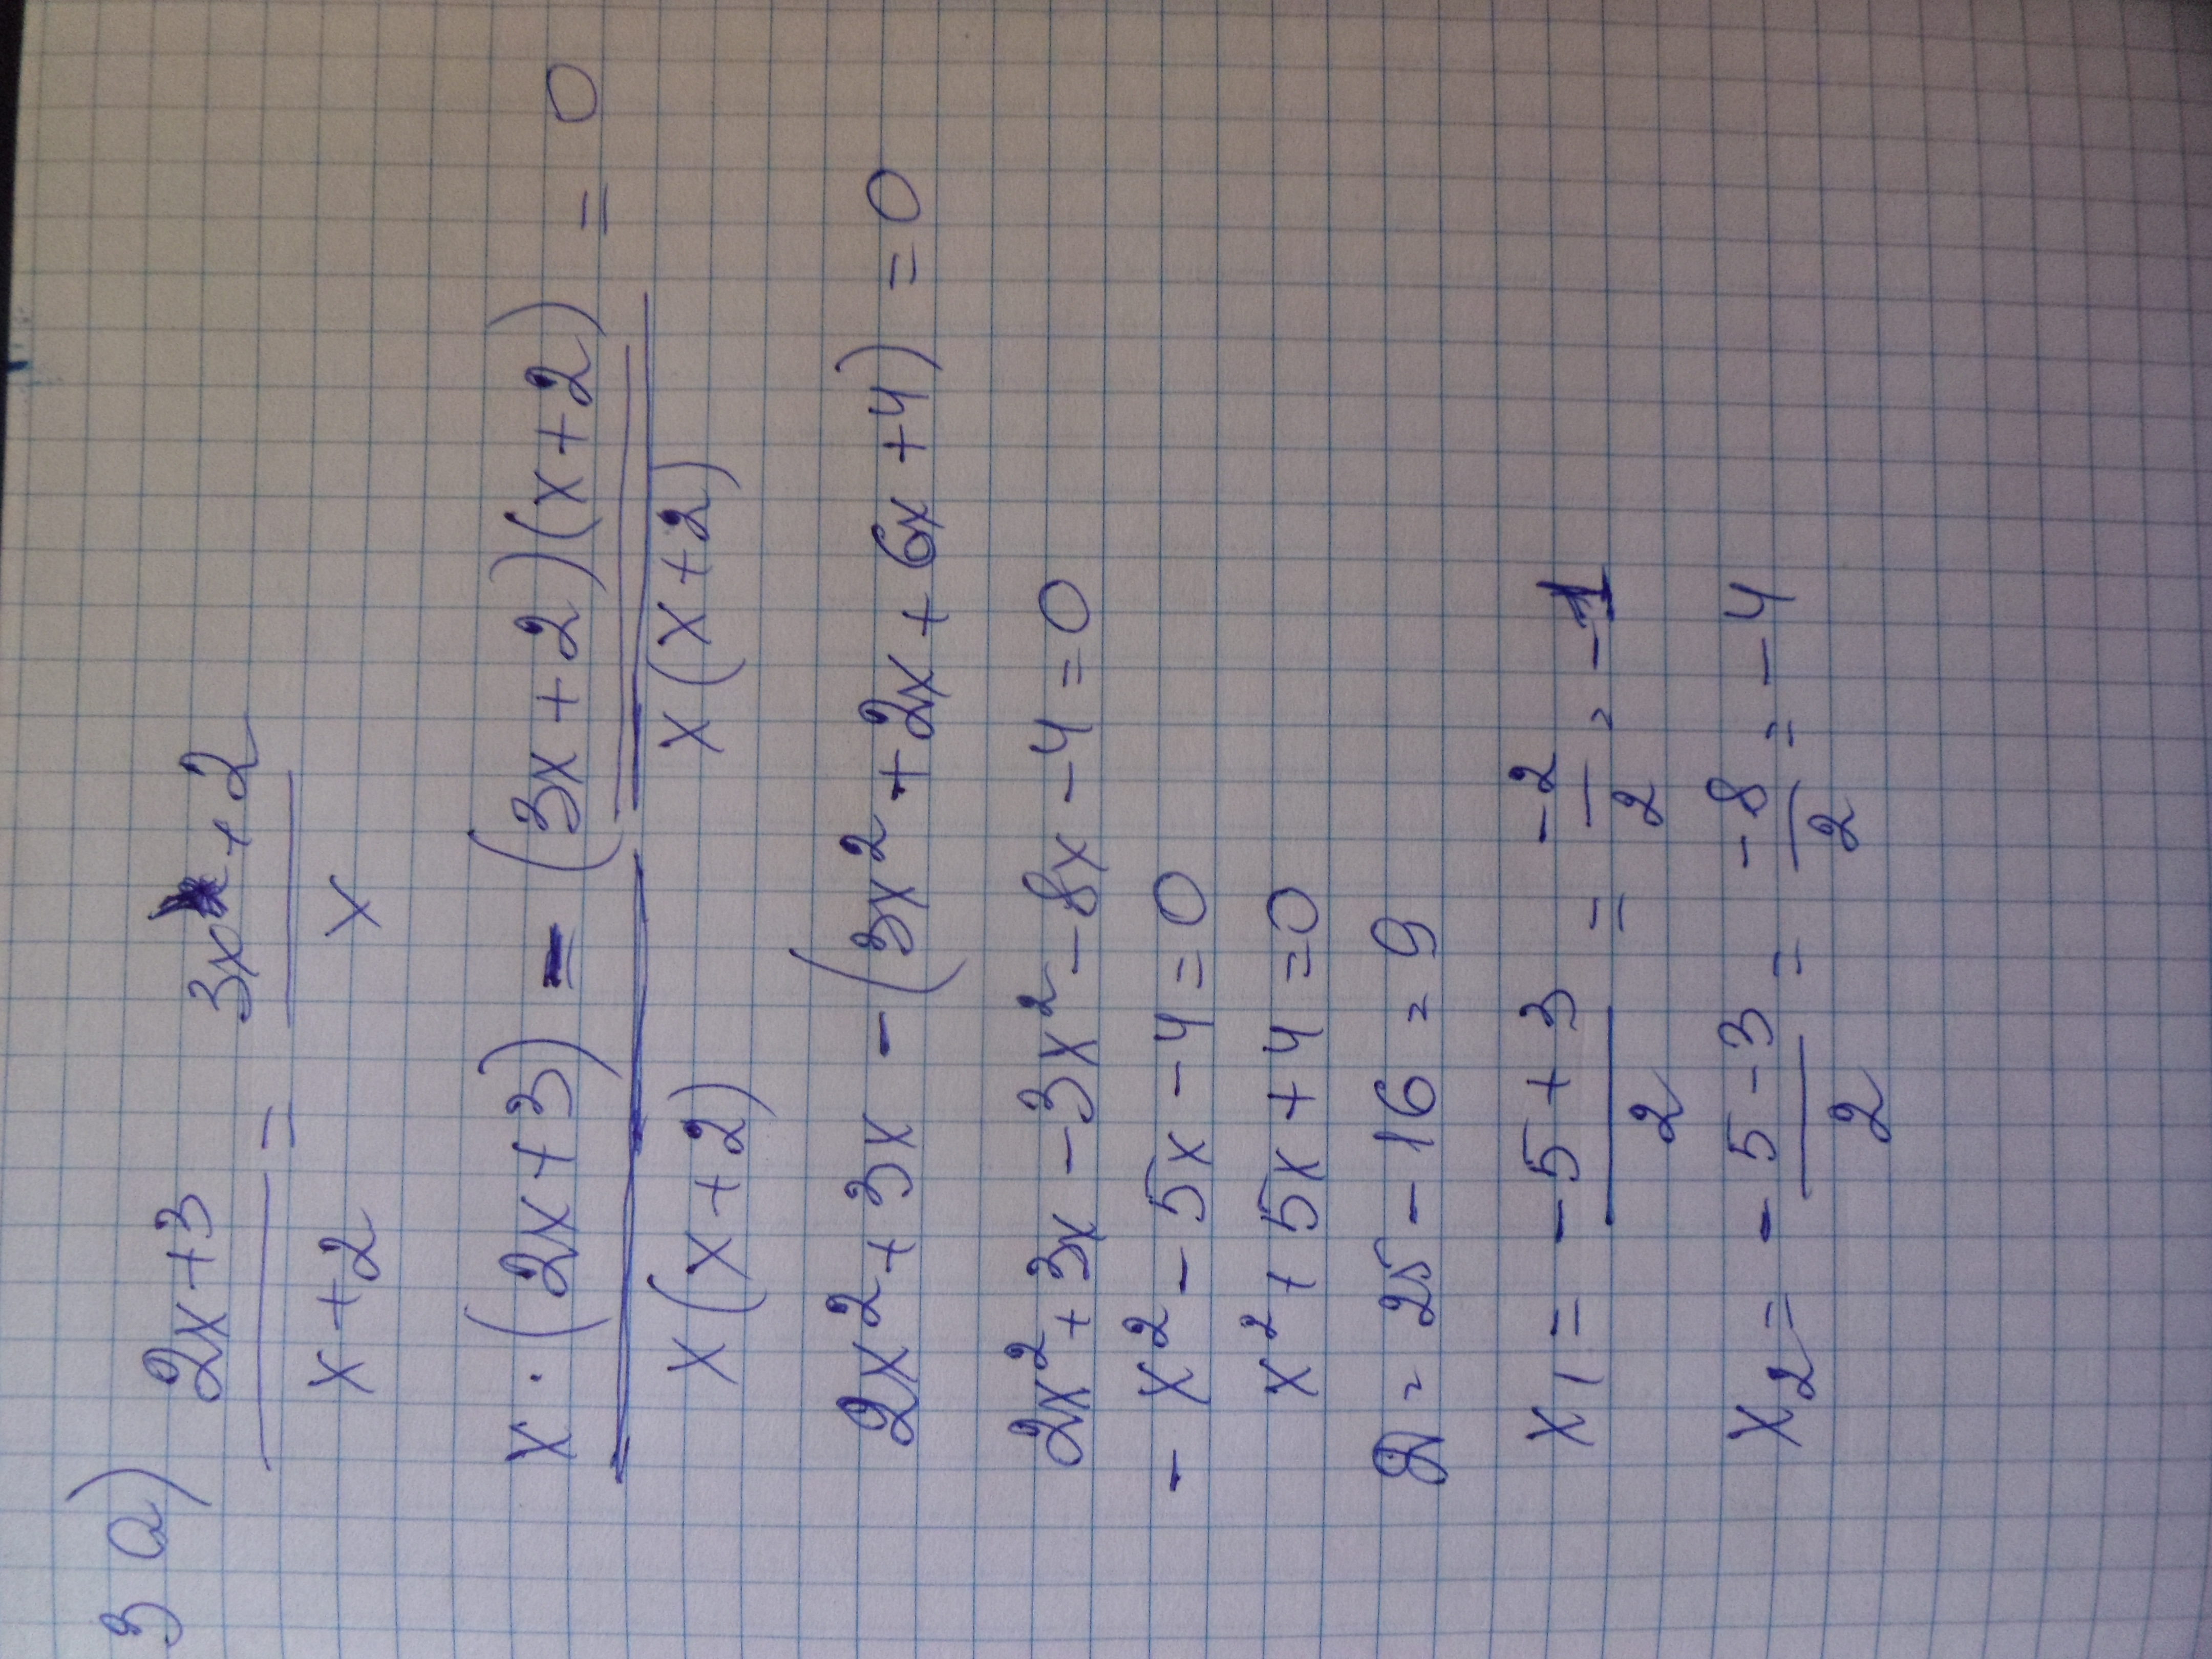 3 а) (2x+3)/(x+2) = (3x+2)/x
(x·(2x+3))/(x(x+2)) - ((3x+2)(x+2))/(x(x+2)) = 0
2x²+3x - (3x²+2x+6x+4) = 0
2x²+3x-3x²-8x-4=0
-x²-5x-4=0
x²+5x+4=0
D = 25-16=9
x₁ = (-5+3)/2 = -2/2 = -1
x₂ = (-5-3)/2 = -8/2 = -4